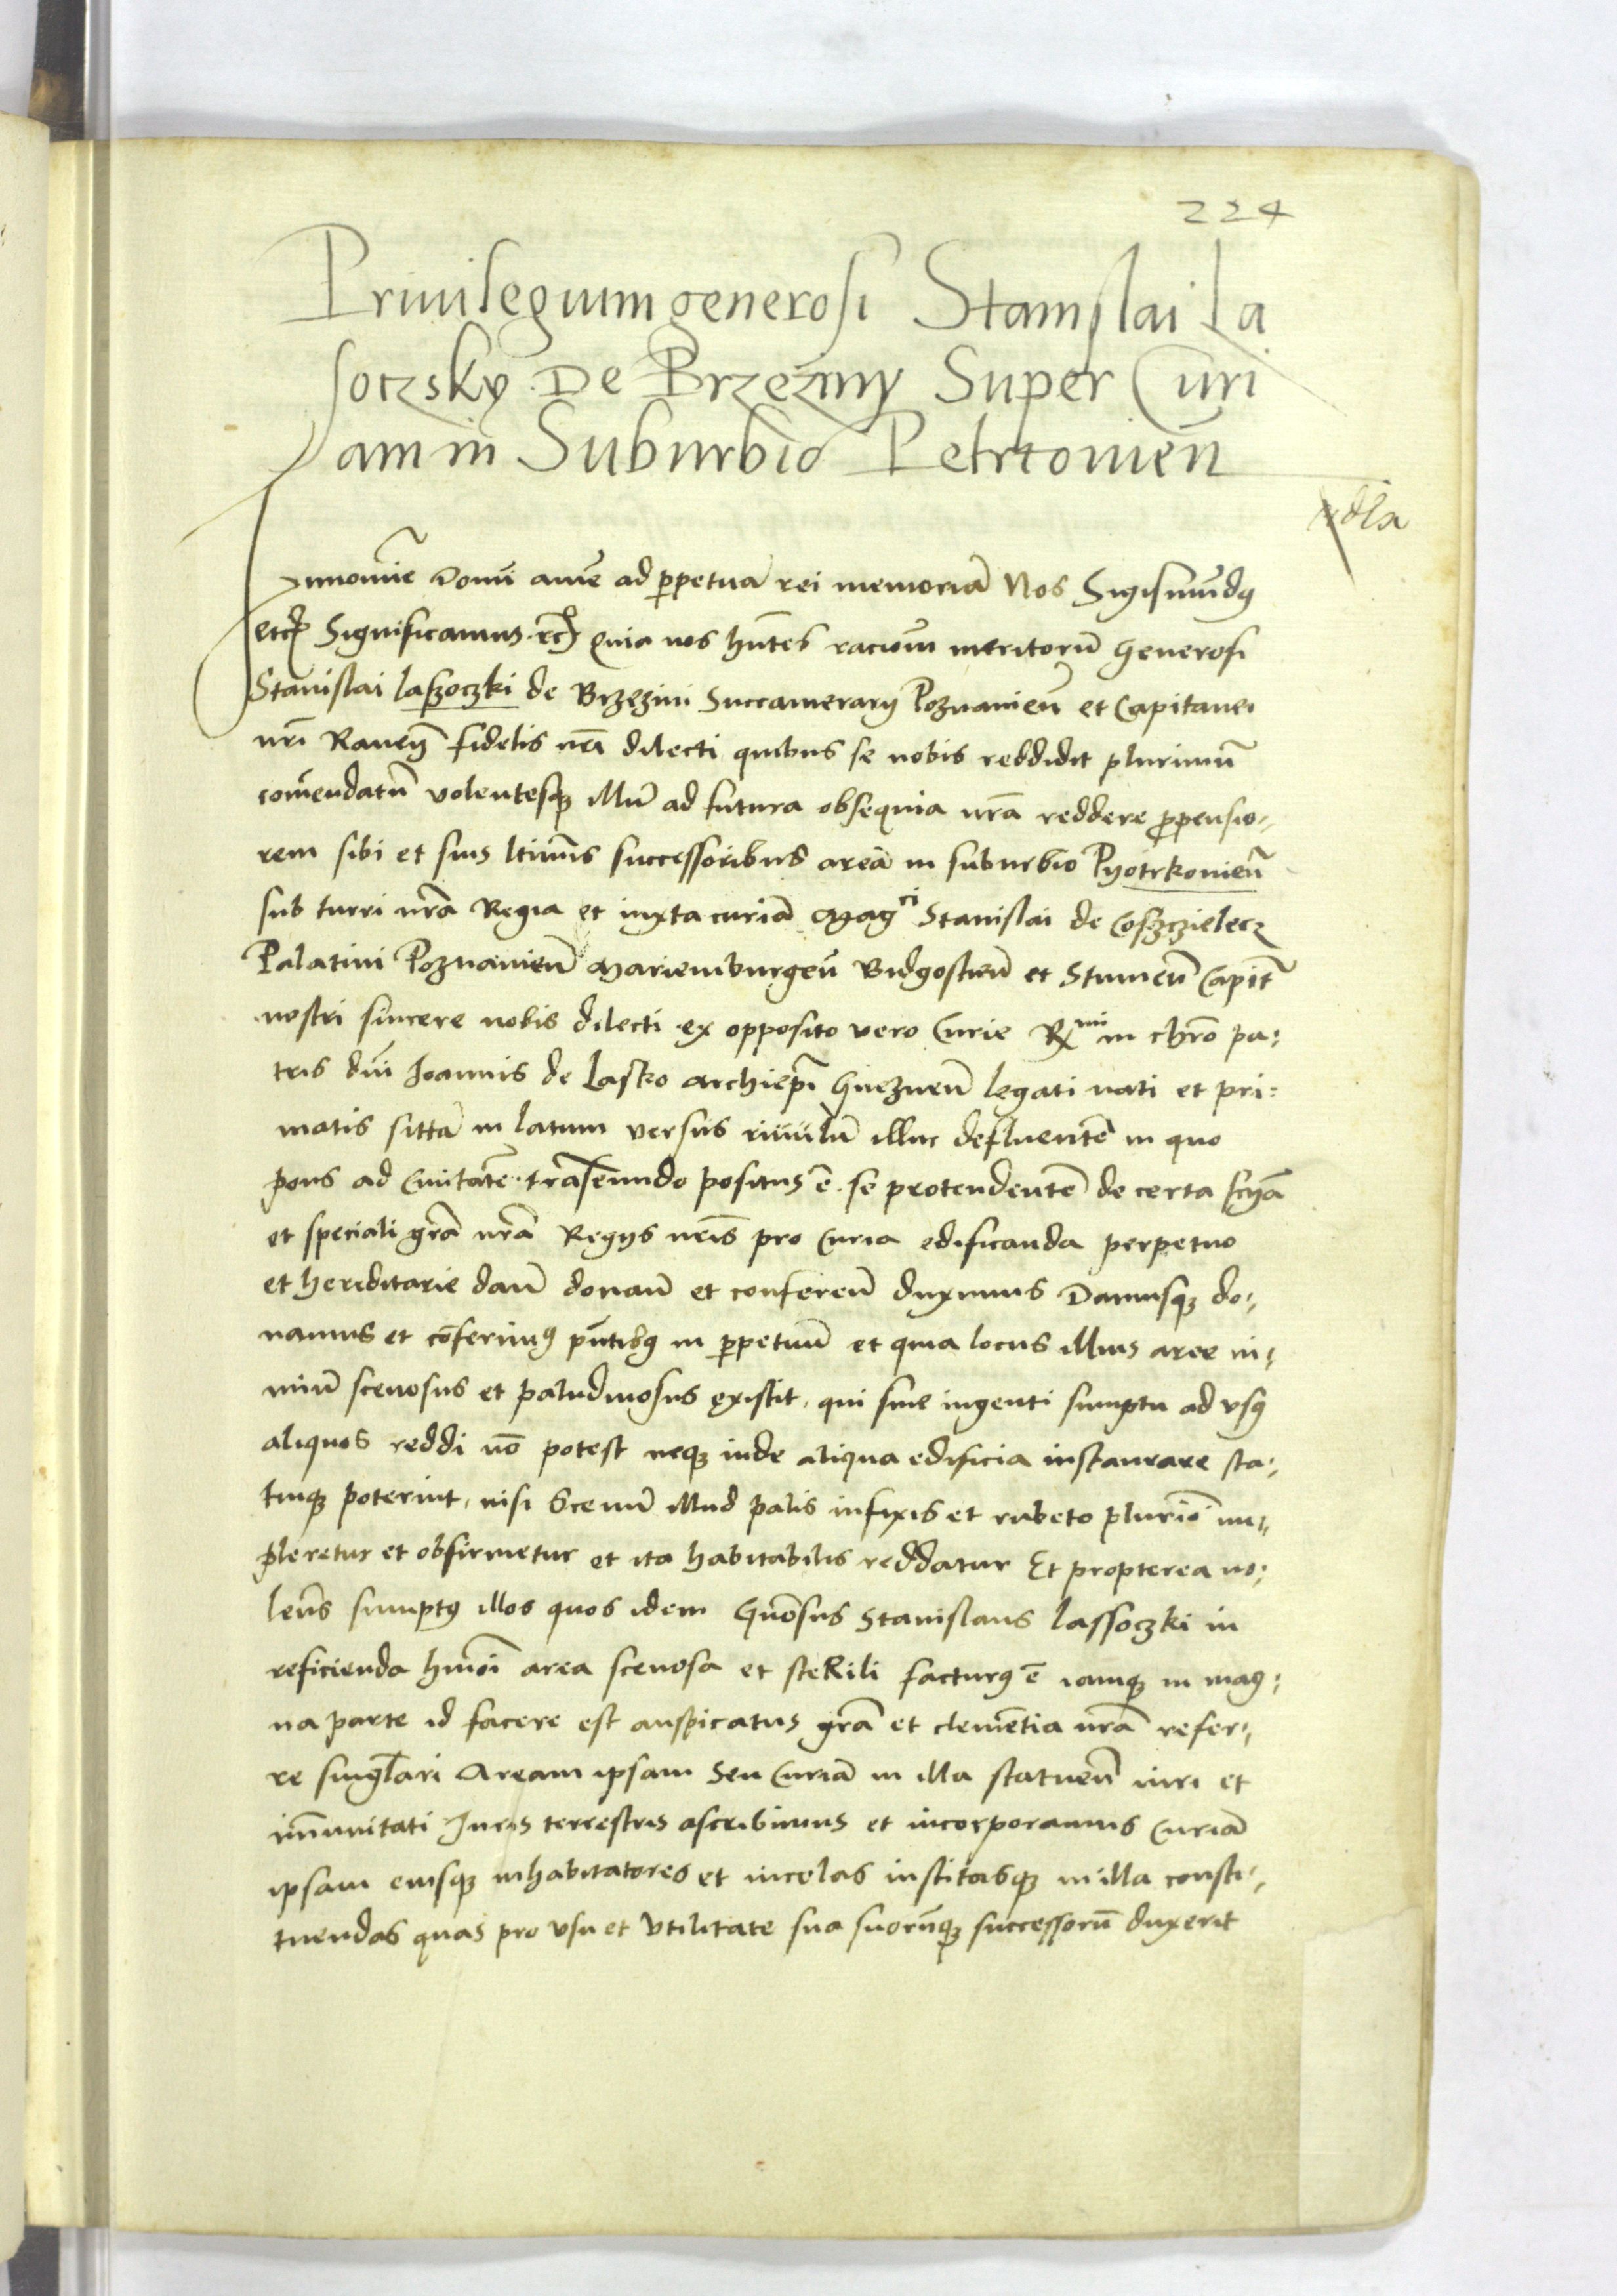 224
Priuilegium generosi Stanislai La
soczsky De Brzeziny Super Curi
am in Suburbio Petrcouien̄
In nomīe Domī amē ad ꝑpetuā rei memoriā Nos Sigismūdꝰ
etc̄ Significamus etc̄ Quia nos hn̄tes racionē meritorū Generosi
Stanislai Laszoczki de Brzezini Succamerarij Poznanien̄ et Capitanei
nr̄i Raueñ fidelis nr̄i dilecti quibus se nobis reddidit plurimū
comēndatū volentesqꝫ illū ad futura obsequia nr̄a reddere ꝓpensio-
rem sibi et suis ltimis successoribus areā in suburbio Pyotrkouien̄
sub turri nr̄a Regia et iuxta curiā Magci Stanislai de Coszczielecz
Palatini Poznanien̄ Mariemburgen̄ Bidgostien̄ et Stumen̄ Capit̄
nostri sincere nobis dilecti ex opposito vero Curie Rmi in chr̄o pa-
tris dn̄i Joannis de Lasko Archiepī Gneznen̄ legati nati et pri-
matis sittā in latum versus riuulū illuc defluentē in quo
pons ad Ciuitatē trāseundo positus ē se protendentē de certa scīa
et speciali grā nr̄a Regijs nr̄is pro Curia edificanda perpetuo
et hereditarie dan̄ donan̄ et conferen̄ duximus Damusqꝫ do-
namus et cōferimꝰ pn̄tibꝰ in ꝑpetuū et quia locus illius aree ni-
miū scenosus et paludinosus existit, qui sine ingenti sumptu ad vsꝰ
aliquos reddi nō potest neqꝫ inde aliqua edificia instaurare sta-
tuiqꝫ poterint, nisi Scenū illud palis infixis et rubeto plurīo im-
pleretur et obfirmetur et ita habitabilis reddatur Et propterea vo-
lens sumptꝰ illos quos idem Gnōsus Stanislaus Lassoczki in
reficienda hm̄oi area scenosa et steRili facturꝰ ē iamqꝫ in mag-
na parte id facere est auspicatus grā et clemētia nr̄a refer-
re singlari Aream ipsam Seu Curiā in illa statuen̄ iuri et
im̄unitati Juris terrestris ascribimus et incorporamus Curiā
ipsam eiusqꝫ inhabitatores et incolas institasqꝫ in illa consti-
tuendas quas pro vsu et vtilitate sua suorūqꝫ successorū duxerit